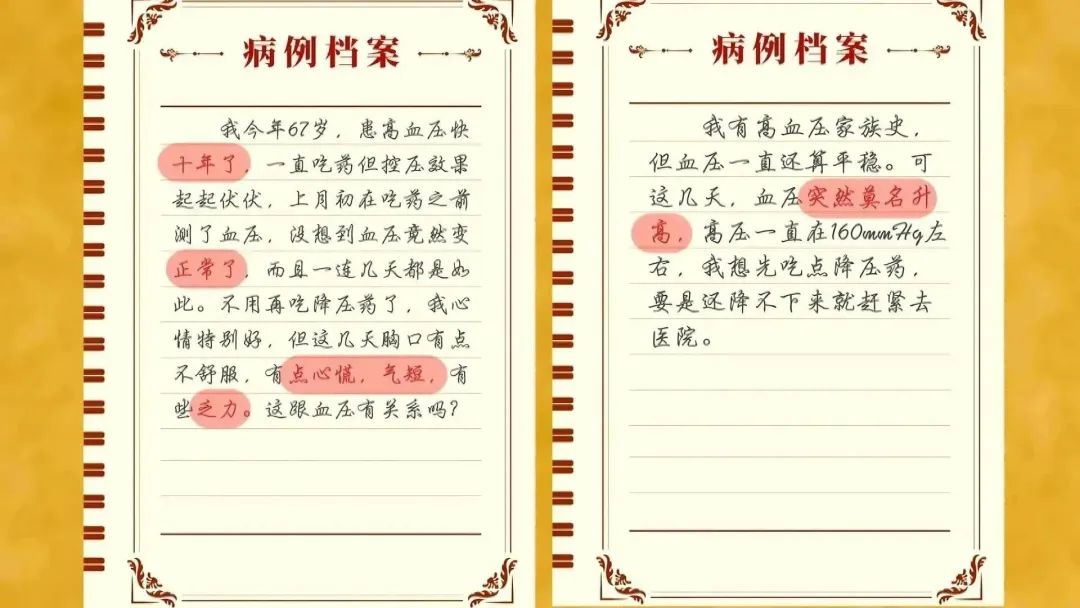 病例档案
我今年67岁，患高血压快
十年了，一直吃药但控压效果
起起伏伏，上月初在吃药之前
测了血压，没想到血压竟然变
正常了，而且一连几天都是如
此。不用再吃降压药了，我心
情特别好，但这几天胸口有点
不舒服，有点心慌，气短，有
些乏力。这跟血压有关系吗？
病例档案
我有高血压家族史，
但血压一直还算平稳。可
这几天，血压突然莫名升
高，高压一直在160mmHg左
右，我想先吃点降压药，
要是还降不下来就赶紧去
医院。